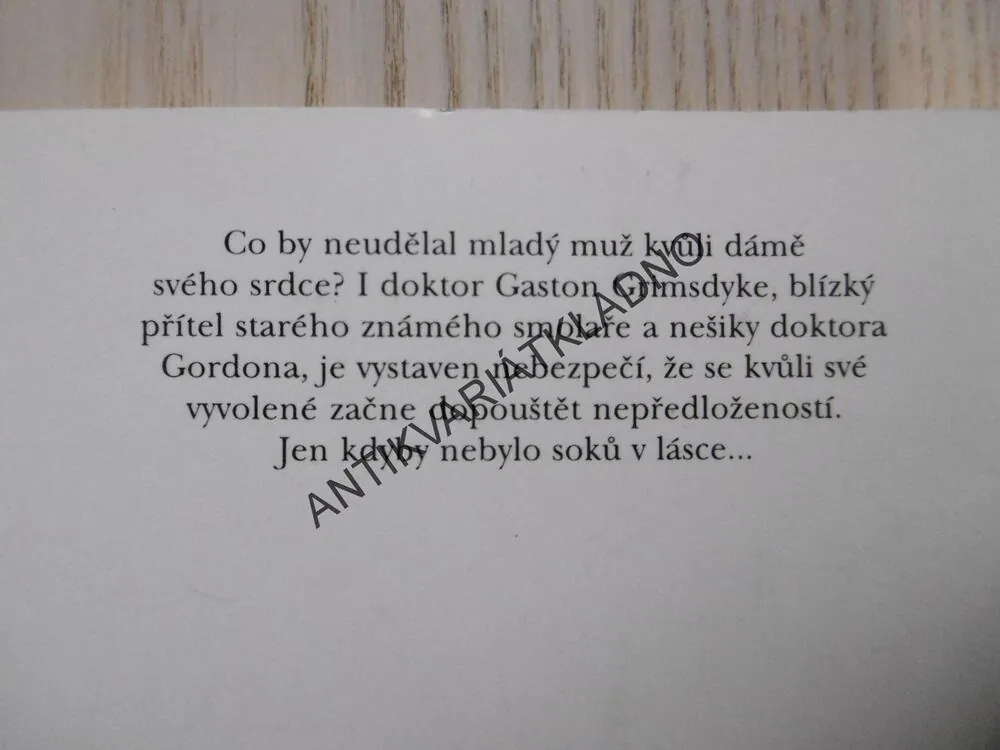 Co by neudělal mladý muž kvůli dámě
svého srdce? I doktor Gaston Grimsdyke, blízký
přítel starého známého smolaře a nešiky doktora
Gordona, je vystaven nebezpečí, že se kvůli své
vyvolené začne dopouštět nepředložeností.
Jen kdyby nebylo soků v lásce...
ANTIKVARIÁTKLADNO